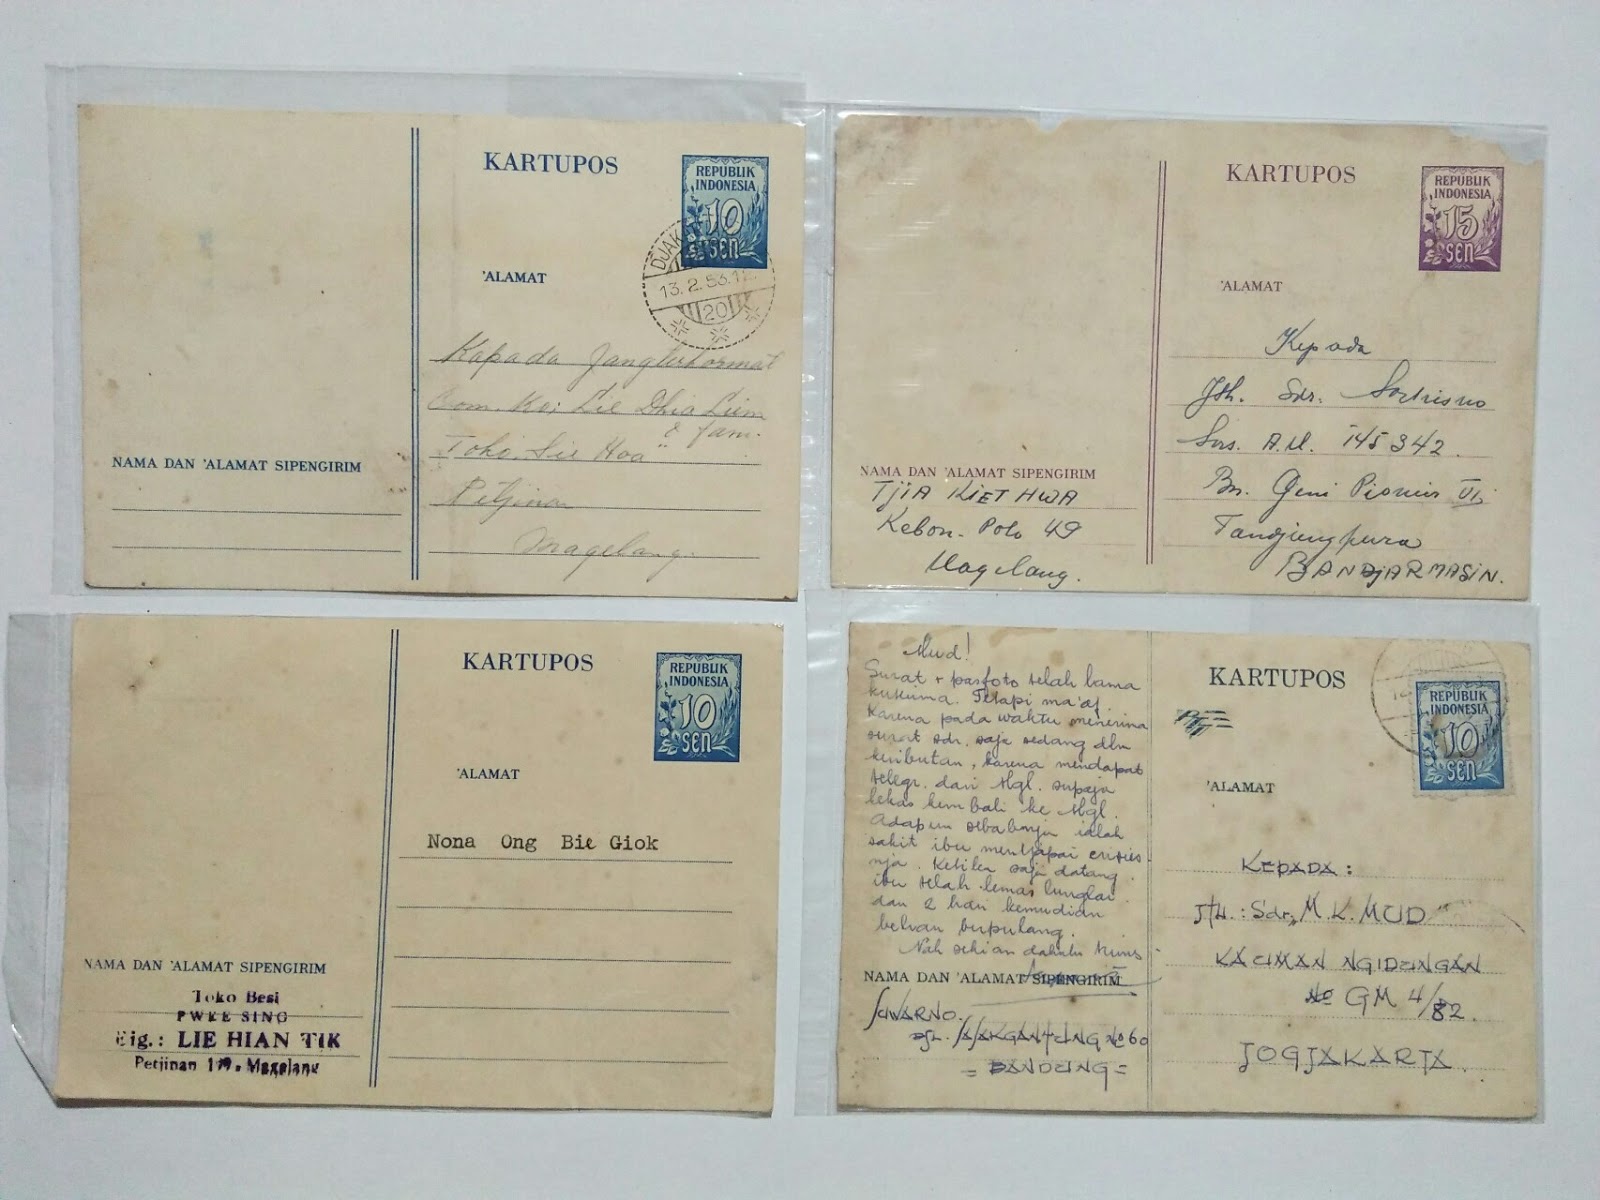 KARTUPOS
REPUBLIK
INDONESIA
10
SEN
DJAK
13.2.53.12
20
'ALAMAT
Kapada Jangterhormat
Lie Dhia Liem
& fam.
Toko Lie Hoa
Petjinan
Magelang.
NAMA DAN 'ALAMAT SIPENGIRIM
KARTUPOS
REPUBLIK
INDONESIA
15
SEN
'ALAMAT
Kepada
Jth. Sdr. Soetrisno
145342.
Bn. Geni Pionir VI.
Tandjungpura
BANDJARMASIN.
NAMA DAN 'ALAMAT SIPENGIRIM
TJIA KIET HWA
Kebon. Polo 49
Magelang.
KARTUPOS
REPUBLIK
INDONESIA
10
SEN
'ALAMAT
Nona Ong Bie Giok
NAMA DAN 'ALAMAT SIPENGIRIM
Toko Besi
PWEE SING
Eig.: LIE HIAN TIK
Petjinan Magelang
Mud!
Surat + pasfoto telah lama
kuterima. Tetapi ma'af.
Karena pada waktu menerima
surat sdr. saja sedang dlm
keributan, karena mendapat
telegr. dari Mgl. supaja
lekas kembali ke Mgl.
Adapun sebabnja ialah
sakit ibu mentjapai crisis-
nja. Ketika saja datang
ibu telah lemas lunglai
dan 2 hari kemudian
beliau berpulang.
Nah sekian dahulu
NAMA DAN 'ALAMAT SIPENGIRIM
SUWARNO.
No 60
= BANDUNG =
KARTUPOS
REPUBLIK
INDONESIA
10
SEN
'ALAMAT
KEPADA:
JTH.: Sdr, M.K. MUD
KAUMAN NGIDUNGAN
No GM 4/82.
JOGJAKARTA.